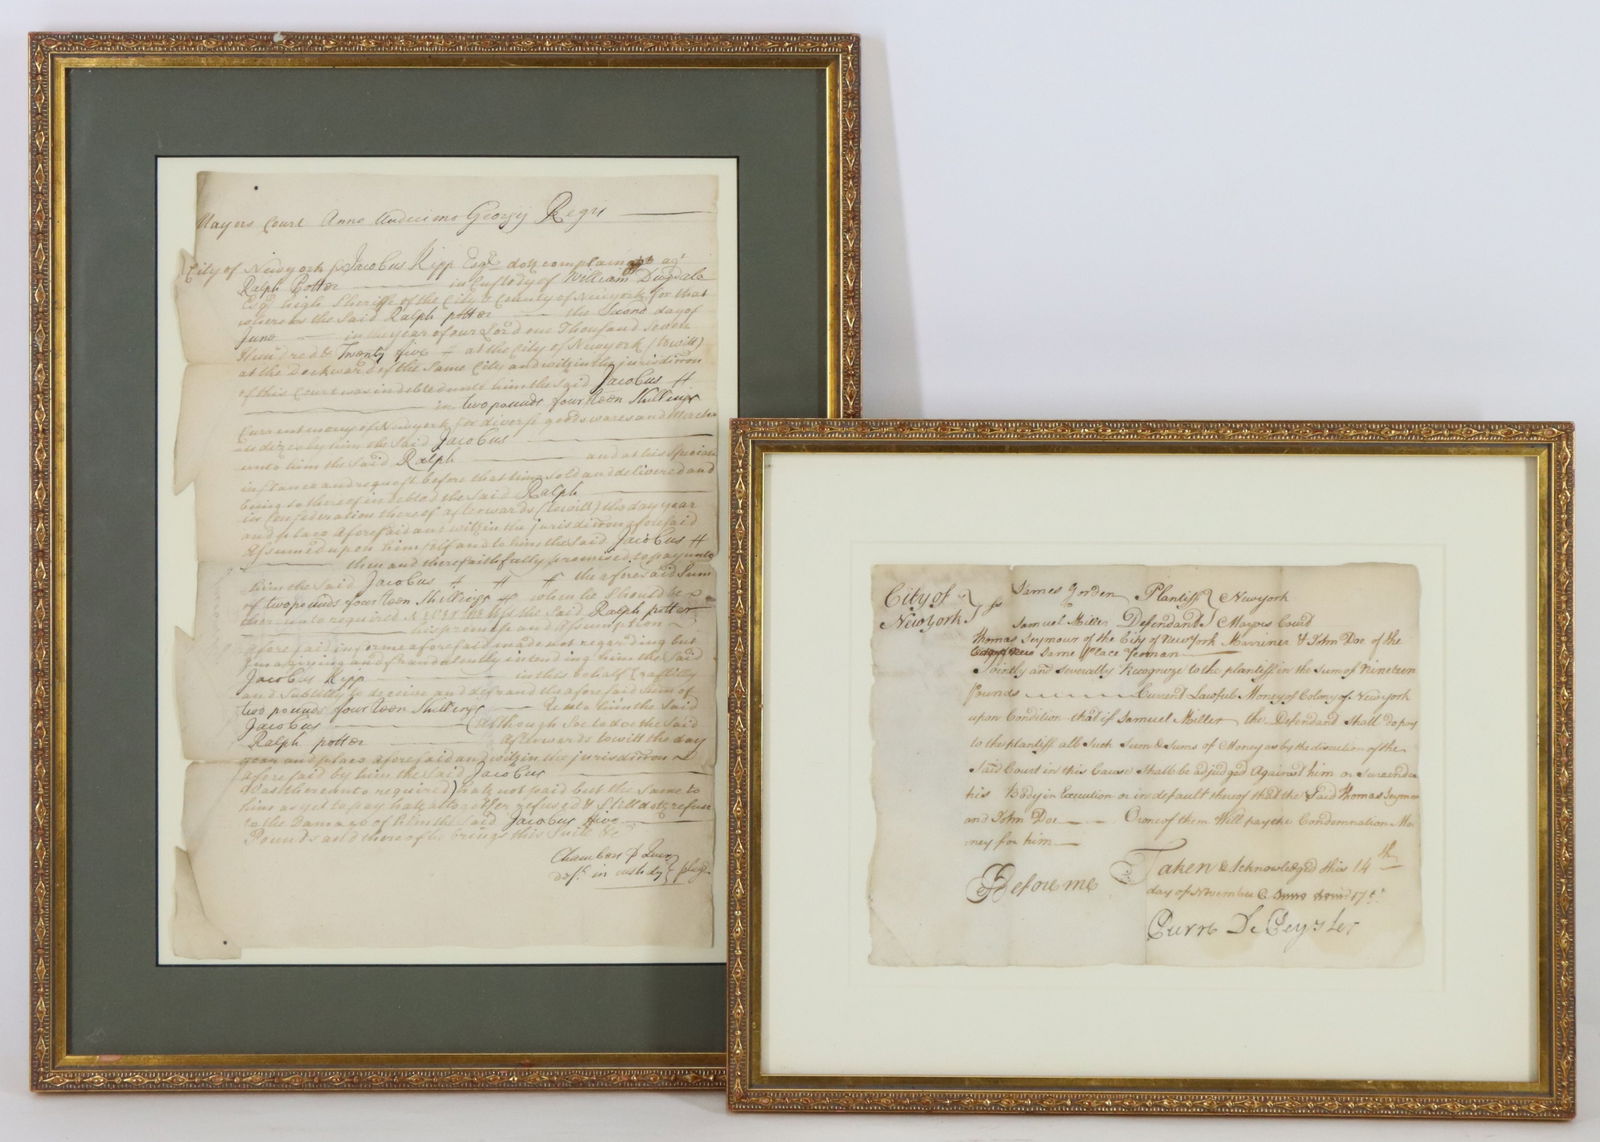 Mayors Court Anno Undecimo Georgij Regis
City of Newyork ss Jacobus Kipp Esqr. doth complain agt
Ralph Potter in Custody of William Dugdale
Esqr high Sheriffe of the City & County of Newyork for that
whereas the Said Ralph potter the Second day of
June in the year of our Lord one Thousand Seven
Hundred & Twenty five at the City of Newyork (towitt)
at the Dockward of the Same City and within the jurisdiction
of this Court was indebted unto him the Said Jacobus
in two pounds fourteen Shillings
Current money of Newyork for diverse goods wares and Mercha
ndizes by him the Said Jacobus
unto him the Said Ralph and at his Speciall
instance and request before that time Sold and delivered and
being so thereof indebted the Said Ralph
in Consideration thereof afterwards (towitt) the day year
and place aforesaid and within the jurisdiction aforesaid
Assumed upon himself and to him the Said Jacobus
then and there faithfully promised to pay unto
him the Said Jacobus the aforesaid Sum
of two pounds fourteen Shillings when he Should be
thereunto required the Said Ralph potter
his promise and Assumption
aforesaid in forme aforesaid made not regarding but
Imagining and fraudulently intending him the Said
Jacobus Kipp in this behalf Craftily
and Subtilly to deceive and defraud the aforesaid Sum of
two pounds fourteen Shillings unto him the Said
Jacobus (although Soe to doe the Said
Ralph potter afterwards towitt the day
year and place aforesaid and within the jurisdiction
aforesaid by him the Said Jacobus
Was thereunto required) hath not paid but the Same to
him as yet to pay hath altogether refused & Still doth refuse
to the Damage of him the Said Jacobus five
Pounds and thereof he brings this Suite &c
Chambers p Quer
def. in custody pleg.
City of New York ss James Gorden Plantiff Newyork
Samuel Miller Defendand Mayors Courd
Thomas Seymour of the City of Newyork Marriner & John Doe of the
Same Place Yeoman
Jointly and Severally Recognize to the plantiff in the Sum of Nineteen
Pounds Current Lawfull Money of Colony of Newyork
upon Condition that if Samuel Miller the Defendand Shall do pay
to the plantiff all Such Sum & Sums of Money as by the discretion of the
Said Court in this Cause Shall be adjudged Against him or Surrender
his Body in Execution or in default thereof that the Said Thomas Seymor
and John Doe Or one of them Will pay the Condemnation Mo
ney for him
Taken & Acknowledged this 14th
Before me day of November Anno 17
De Peyster